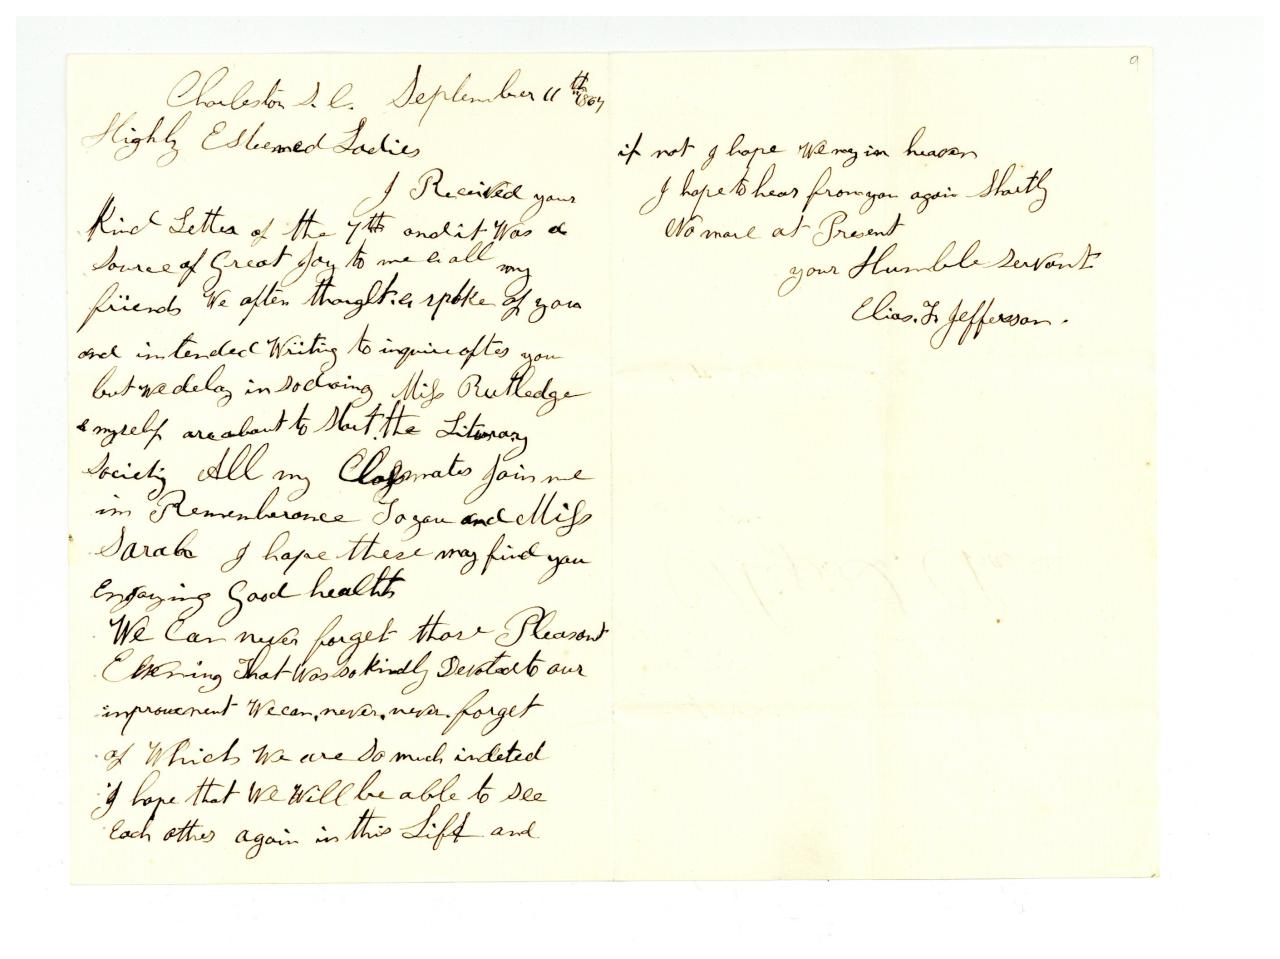 9
Charleston S. C. September 11th 1867
Highly Esteemed Ladies
I Received your
Kind Letter of the 7th and it Was a
source of Great Joy to me & all my
friends We often thought & spoke of you
and intended Writing to inquire after you
but we delay in so doing Miss Rutledge
& myself are about to Start the Literary
Society All my Classmates Join me
in Rememberance To you and Miss
Sarah I hope these may find you
Enjoying Good health
We Can never forget those Pleasant
Evening That Was so kindly Devoted to our
improvement We can, never, never forget
of Which We are so much indeted
I hope that We Will be able to see
Each other again in this Life and
if not I hope We may in heaven
I hope to hear from you again Shortly
No more at Present
your Humble servant
Elias. F. Jefferson.